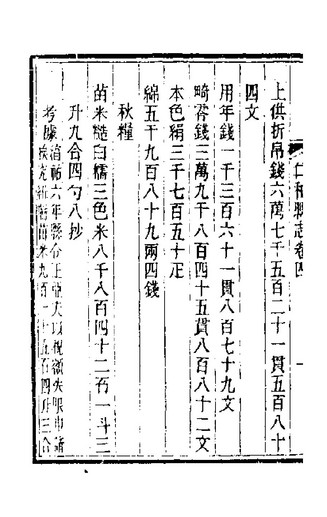 仁和縣志卷四
上供折帛錢六萬七千五百二十一貫五百八十
四文
用年錢一千三百六十一貫八百七十九文
畸零錢三萬九千八百四十五貫八百八十二文
本色絹三千七百五十疋
綿五千九百八十九兩四錢
秋糧
苗米糙白糯三色米八千八百四十二石一斗三
升九合四勺八抄
考據 六年縣 王 大以
苗米九百二十五石四升三合